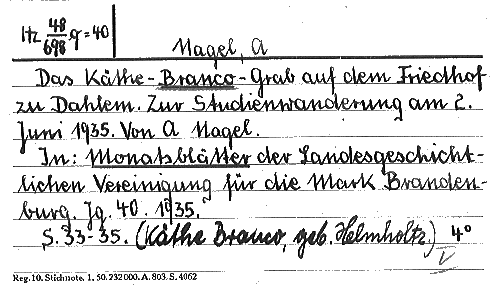 Itz 48/698 q = 40
Nagel, A
Das Käthe-Branco-Grab auf dem Friedhof
zu Dahlem. Zur Studienwanderung am 2.
Juni 1935. Von A Nagel.
In: Monatsblätter der Landesgeschicht-
lichen Vereinigung für die Mark Branden-
burg. Jg. 40. 1935.
S. 33-35. (Käthe Branco, geb. Helmholtz.) 4°
Reg. 10. Stichnote. 1. 50. 232000. A. 803. S. 4062